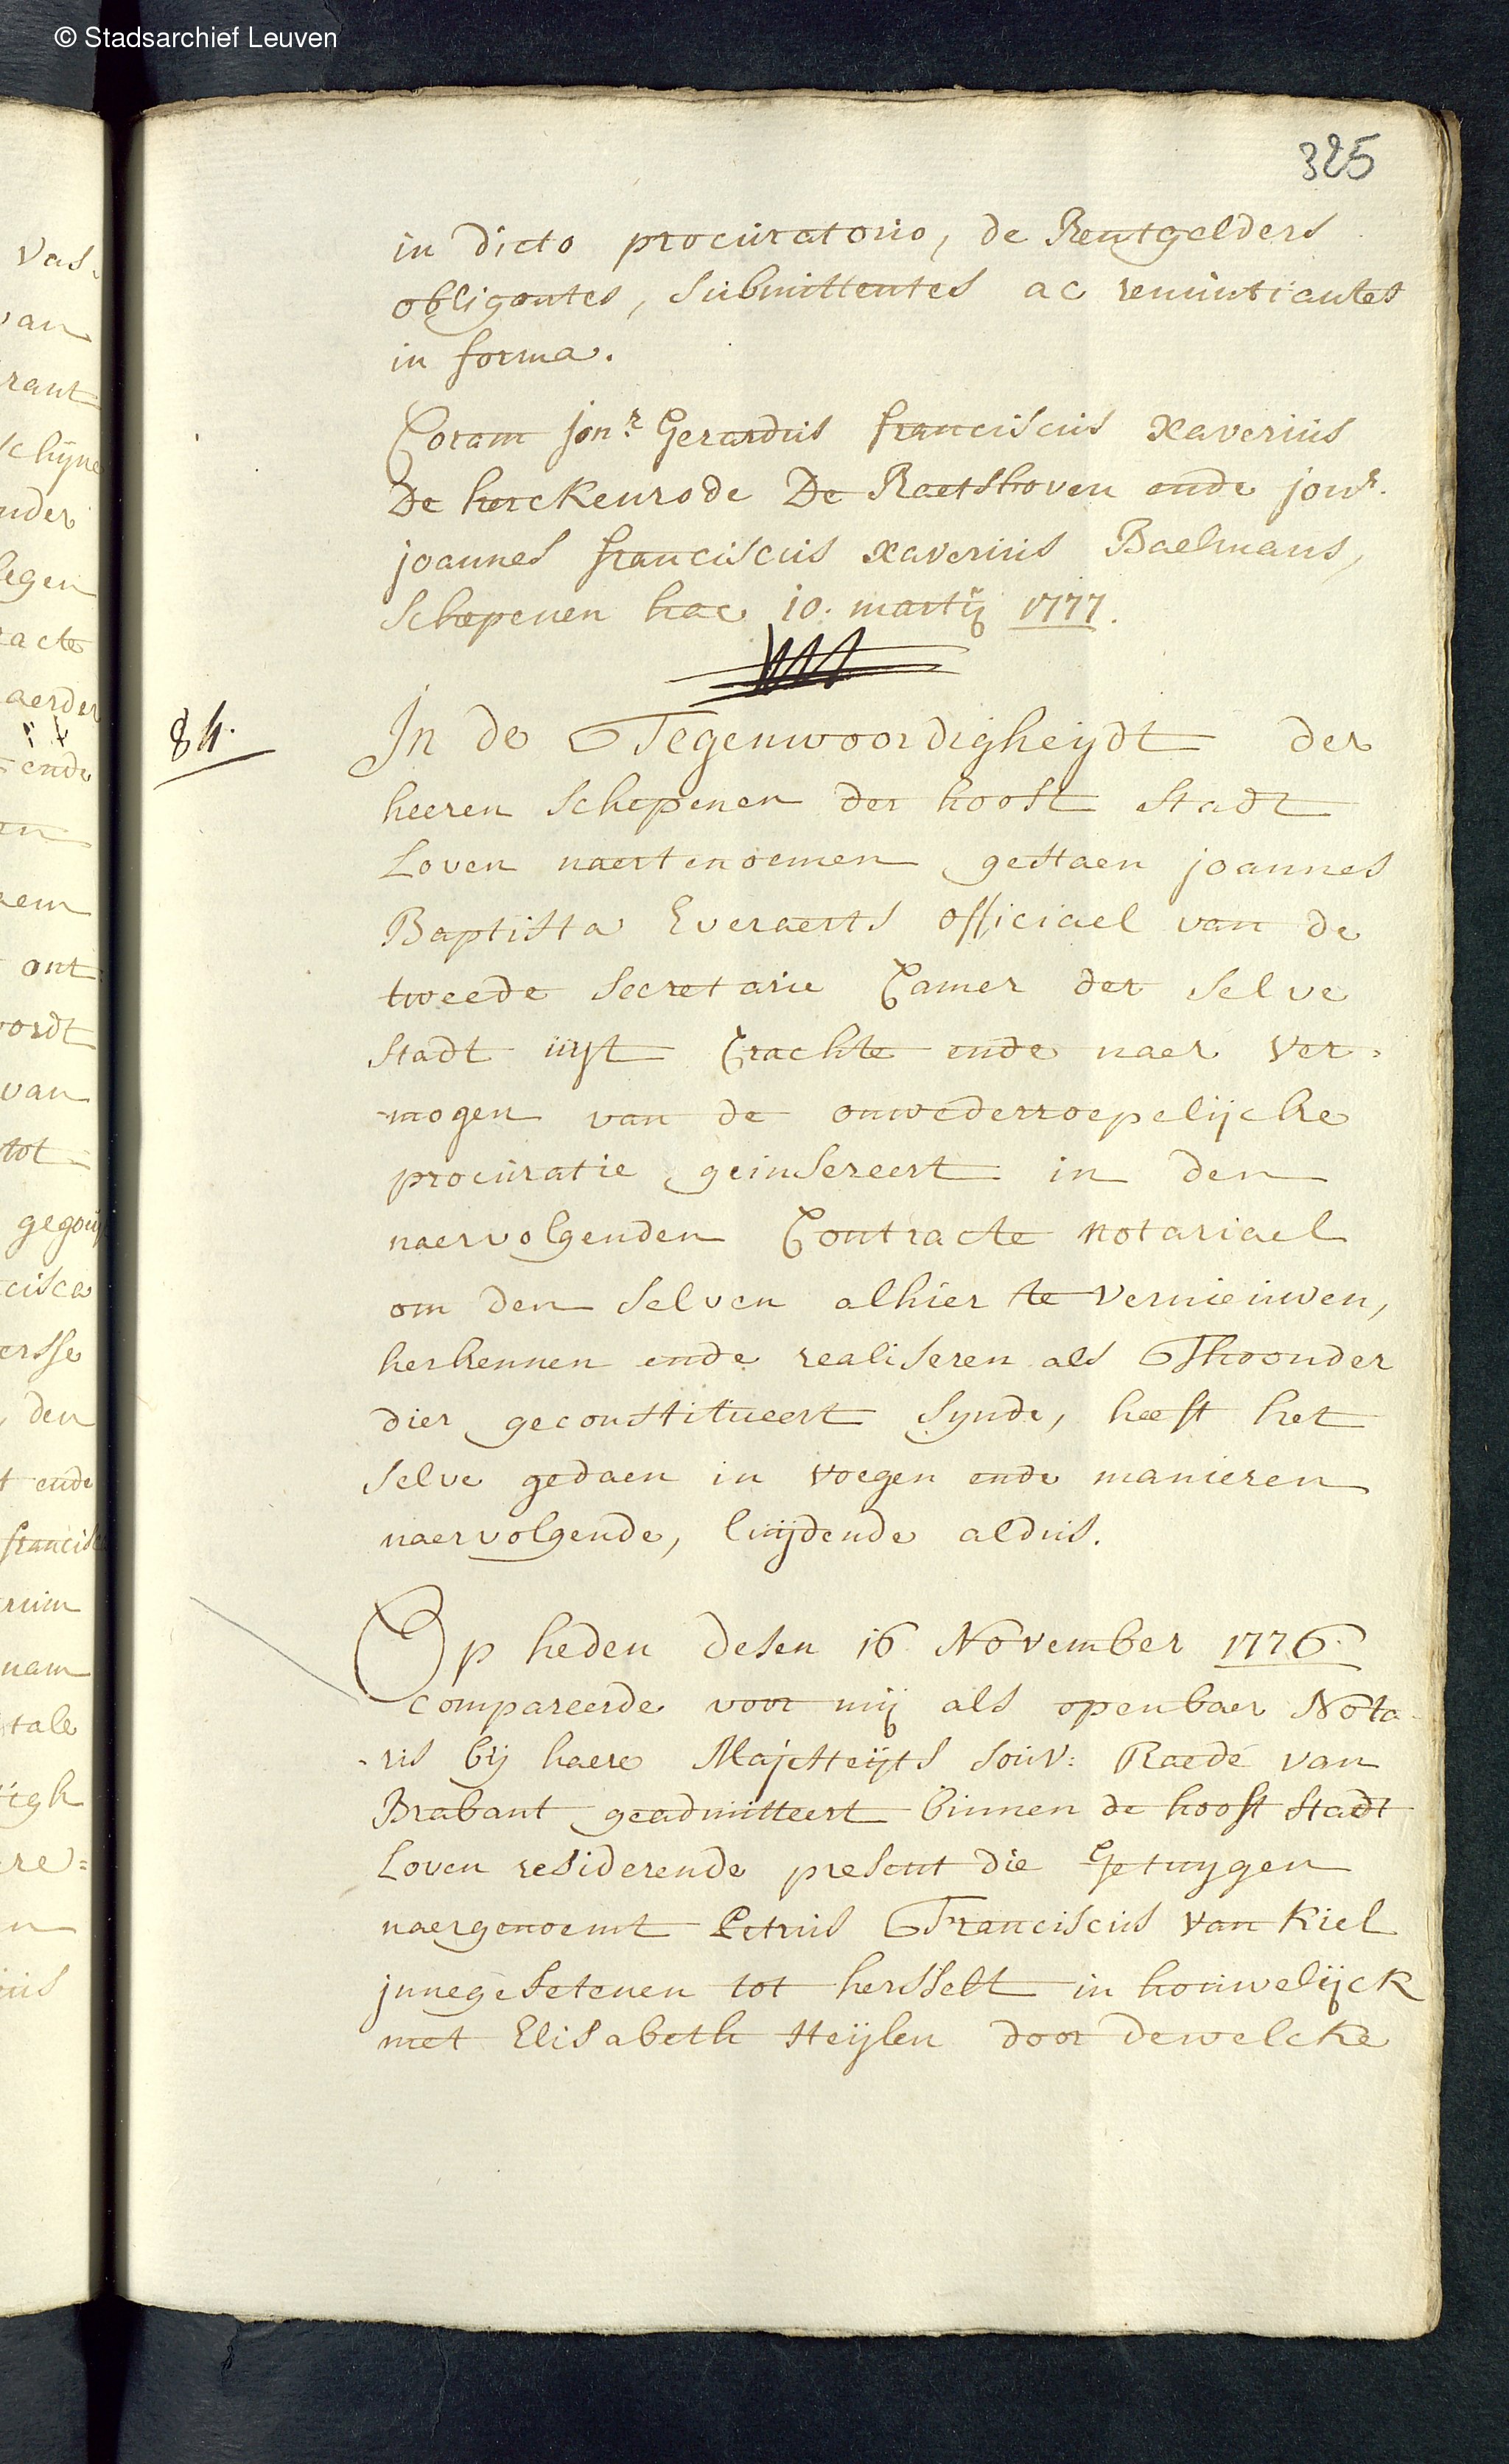 © Stadsarchief Leuven
325
in dicto procuratorio, de Rentgelders
obligantes, submittentes ac renuntiantes
in forma.
Coram jonr. Gerardus franciscus xaverius
De herckenrode De Raetshoven ende jonr.
joannes franciscus xaverius Baelmans,
Schepenen hac 10. martij 1777.
84.
In de Tegenwoordigheijdt der
heeren Schepenen der hooft Stadt
Loven naertenoemen gestaen joannes
Baptista Everaerts officiael van de
tweede Secretarie Camer der Selve
Stadt uyt Crachte ende naer Ver-
-mogen van de onwederroepelijcke
procuratie geinsereert in den
naervolgenden Contracte notariael
om den Selven alhier te Vernieuwen,
herkennen ende realiseren als Thoonder
dier geconstitueert Synde, heeft het
Selve gedaen in voegen ende manieren
naervolgende, luijdende aldus.
Op heden desen 16 November 1776.
compareerde voor mij als openbaer Nota-
-ris bij haere Majesteijts Souv: Raede van
Brabant geadmitteert binnen de hooft Stadt
Loven residerende present die Getuygen
naergenoemt Petrus Franciscus van Kiel
jnnegesetenen tot hersselt in houwelijck
met Elisabeth Steijlen door dewelcke
Vas-
van
rant
schijne
nder
legen
racte
aerder
ende
en
aem
ont
wordt
van
tot
cisca
ersse
, den
t ende
francisca
rum
nam
tale
tigh
ere=
n